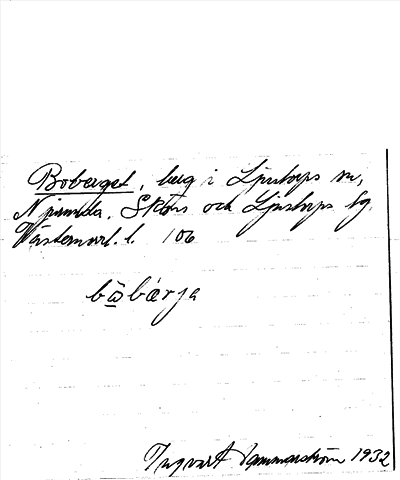 Boberget, berg i Ljustorps sn,
Njurunda, Sköns och Ljustorps tg.
Västernorrl. l. 106
bò͕bærja
Ingvart Hammarström 1932